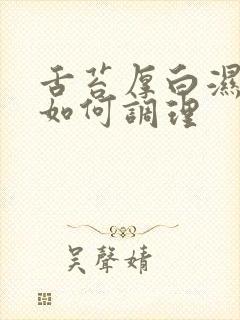 舌苔厚白濕
如何調理
吴聲婧